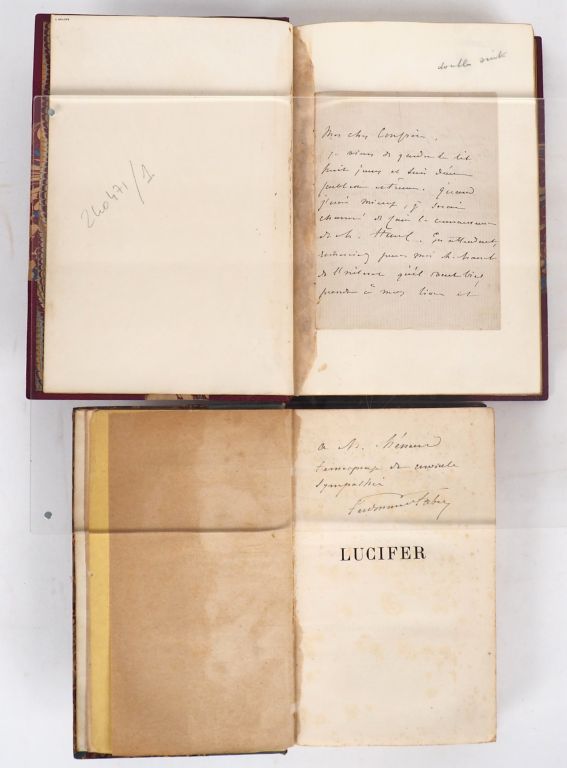 240471/1
Mon cher Confrère.
je viens de garder le lit
huit jours et suis encore
Quand
j'irai mieux, je serai
charmé de faire la connaissance
de M. En attendant,
remerciez pour moi M.
de l'intérêt qu'il veut bien
prendre à mes livres et
a M.
témoignage de cordiale
sympathie
Ferdinand Fabre
LUCIFER